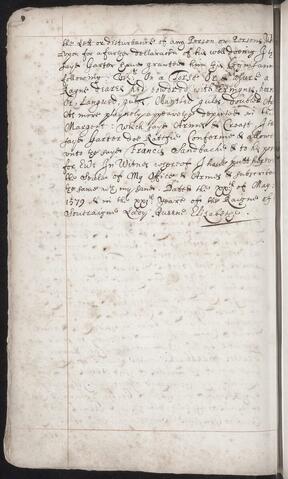 the Lett or disturbance of any Person or Persons And
upon for a further declaracon of his well dooing I the
sayd Garter have graunted him this
following. Vizt. On a Torse Or & Azure a
powdred with Ermyns,
or Langued gules, Mantled gules doubled
As more playnely appeareth depicted in the
Margent: Which sayd Armes & Creast I the
sayd Garter doe Ratifie Confirme & allowe
unto the sayd Francis Sandbache & to his
for Ever In Witnes whereof I have putt hereto
the Seale of My Office & Armes & subscribed
the same with my hand. Dated the of May
1579 & in the Yeare of the Raigne of
Soveraigne Lady Queene Elizabeth.